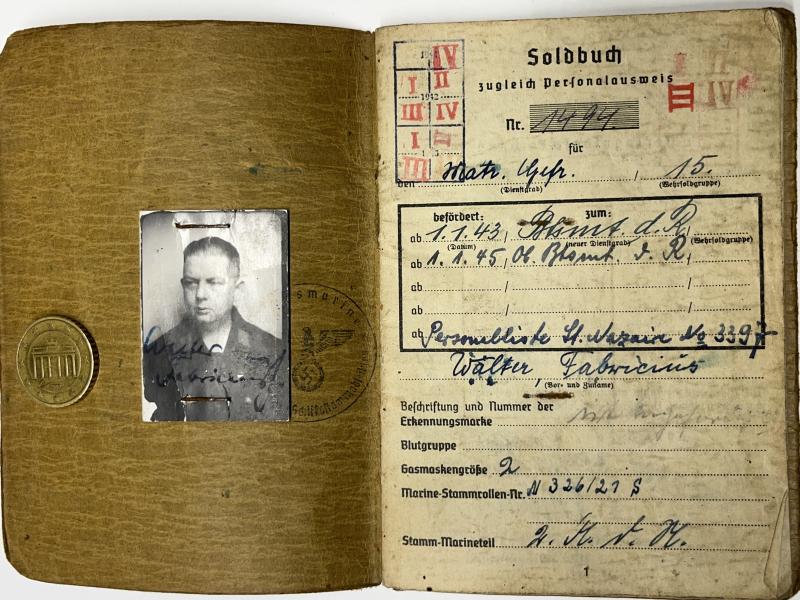 Walter
Fabricius
IV
I II
1942
III IV
I II
III
Soldbuch
zugleich Personalausweis
III
Nr. 1494
für
den Matr. Gefr. , 15.
(Dienstgrad) (Wehrsoldgruppe)
befördert: zum:
ab 1.1.43, Btsmt. d. R.,
(Datum) (neuer Dienstgrad) (Wehrsoldgruppe)
ab 1.1.45, Ob. Btsmt. d. R.,
ab
ab
ab Personalliste St. Nazaire No 3397
Walter Fabricius
(Vor- und Zuname)
Beschriftung und Nummer der
Erkennungsmarke
Blutgruppe
Gasmaskengröße 2
Marine-Stammrollen-Nr. N 326/21 S
Stamm-Marineteil 2. K. d. K.
1